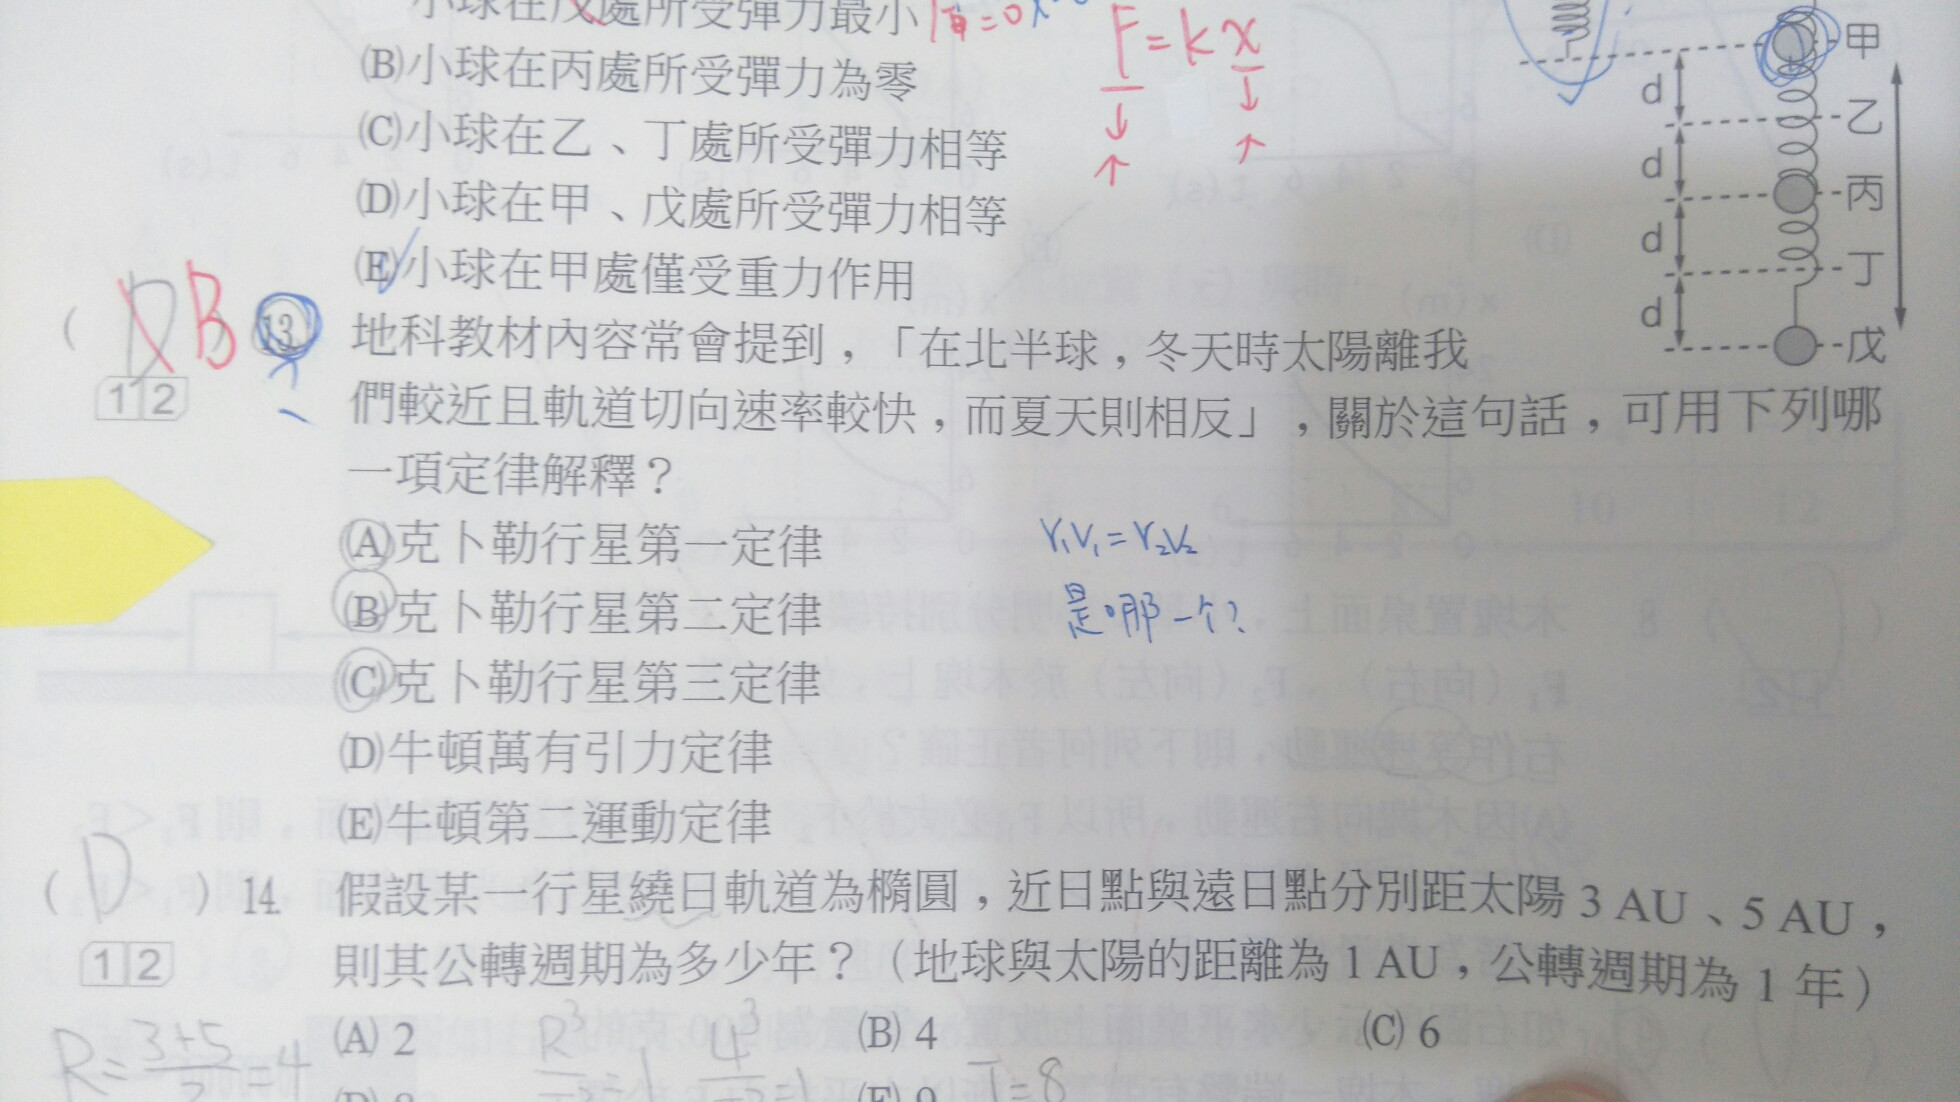 小球在戊處所受彈力最小
(B)小球在丙處所受彈力為零
(C)小球在乙、丁處所受彈力相等
(D)小球在甲、戊處所受彈力相等
(E)小球在甲處僅受重力作用
F=kx
↓ ↓
↑ ↑
甲
d
乙
d
丙
d
丁
d
戊
( D B 13. 地科教材內容常會提到，「在北半球，冬天時太陽離我
12 們較近且軌道切向速率較快，而夏天則相反」，關於這句話，可用下列哪
一項定律解釋？
(A)克卜勒行星第一定律
(B)克卜勒行星第二定律
(C)克卜勒行星第三定律
(D)牛頓萬有引力定律
(E)牛頓第二運動定律
r₁v₁=r₂v₂
是哪一个?
( D ) 14. 假設某一行星繞日軌道為橢圓，近日點與遠日點分別距太陽 3 AU、5 AU，
12 則其公轉週期為多少年？（地球與太陽的距離為 1 AU，公轉週期為 1 年）
(A) 2 (B) 4 (C) 6
R=3+5/2=4
T=8